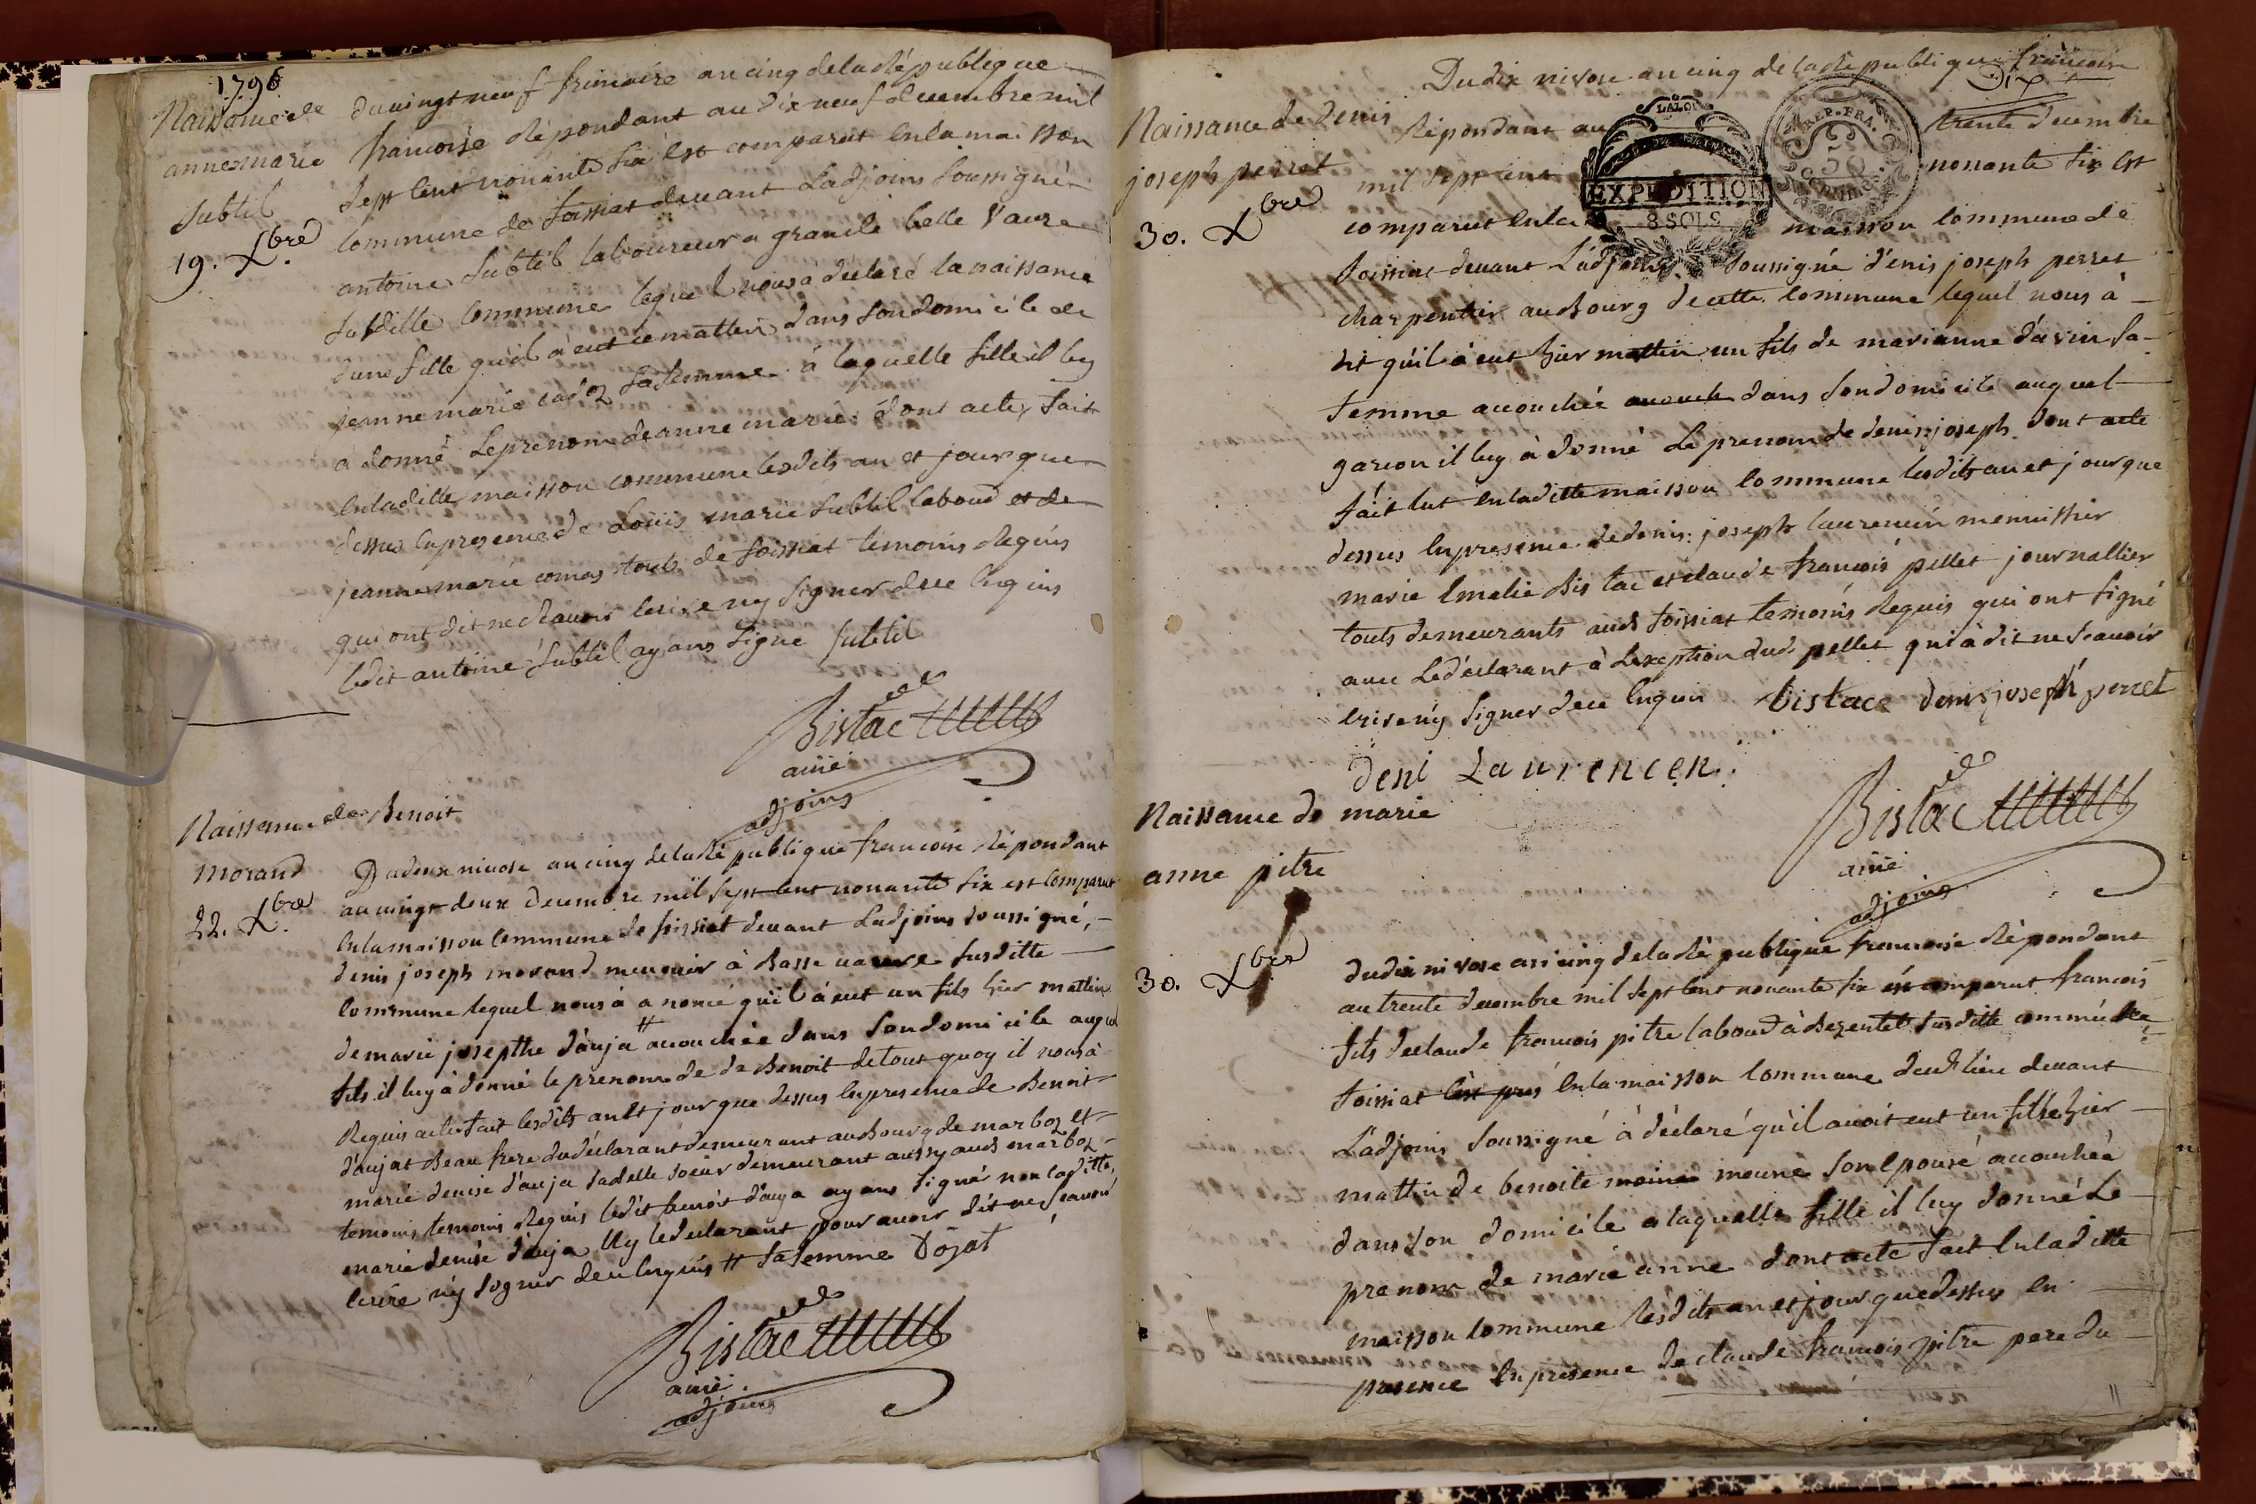 1796
Naissance de
annemarie
subtil
19. Xbre
du vingt neuf frimaire an cinq de la Republique
francoise Répondant au dix neuf decembre mil
sept cent nonante six est comparut en la maisson
commune de foissiat devant Ladjoins soussigné
antoine subtil laboureur a grande belle vavre
susditte commune lequel nous a déclaré la naissance
dune fille quil à eut ce mattin dans son domicile de
jeanne marie cadoz sa femme à laquelle fille il luy
a donné le prenom de anne marie dont acte, fait
en laditte maisson commune lesdits an et jour que
dessus en presence de Louis marie subtil laboud et de
jeanne marie comas touts de foissiat temoins Requis
qui ont dit ne scavoir ecrire ny signer de ce enquis
ledit antoine subtil ayans signe subtil
Bistac
ainé
adjoins
Naissance de Benoit
morand
22. Xbre
Du deux nivose an cinq de la Republique francoise Répondant
au vingt deux decembre mil sept cent nonante six est comparut
en la maisson commune de foissiat devant Ladjoins soussigné,
denis joseph morand meunier à Basse vavre susditte
commune lequel nous à anoncé quil à eut un fils hier mattin
de marie josepthe dauja # acouchée dans son domicile auquel
fils il luy à donné le prenom de de Benoit de tout quoy il nous à
Requis acte fait lesdits an et jour que dessus en presence de Benoit
daujat Beau frere du déclarant demeurant au Bourg de marboz et
marie denise dauja sadelle soeur demeurant aussy aud marboz
temoins temoins Requis ledit benoit dauja ayans signé non laditte
marie denise dauja Ny le déclarant pour avoir dit ne scavoir
ecrire ny signer de ce enquis # sa femme Dojat
Bistac
ainé
adjoins
Du dix nivose an cinq de la Republique francoise
Dix
Naissance de Denis
joseph perret
30. Xbre
LALOI
EXPEDITION
8 SOLS
REP. FRA.
Répondant au trente decembre
mil sept cent nonante six est
comparut en la maisson commune de
foissiat devant Ladjoins soussigné denis joseph perret
charpentier au Bourg de cette commune lequel nous à
dit quil à eut hier mattin un fils de marianne davin sa
femme acouchée acouch dans son domicile auquel
garcon il luy à donné le prenom de denis joseph dont acte
fait lut en laditte maisson commune lesdits an et jour que
dessus en presence de denis joseph laurencin menussier
marie Emelie Bistac et claude francois pellet journallier
touts demeurants aud foissiat temoins Requis qui ont signé
avec Le déclarant à Lexception dud pellet qui à dit ne scavoir
ecrire ny signer de ce enquis bistac denis joseph perret
deni Laurencen
Bistac
ainé
adjoins
Naissance de marie
anne pitre
30. Xbre
du dix nivose an cinq de la Republique francoise Répondant
au trente decembre mil sept cent nonante six est comparut francois
fils de claude francois pitre laboud à Bezentet susditte commune
foissiat en la maisson commune dud lieu devant
Ladjoins soussigné à déclaré quil avoit eut un fille hier
mattin de benoite moine meune son Epouse acouchée
dans son domicile a laquelle fille il luy donné Le
prenom de marie anne dont acte fait en laditte
maisson commune lesdits an et jour que dessus en
presence en presence de claude francois pitre pere du